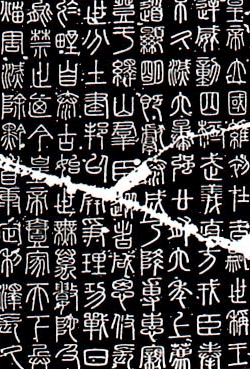 皇帝立國維初在昔嗣世稱王
逆威動四極武義直方戎臣奉
不久滅六暴強廿有六年上薦
道顯明既獻泰成乃降專惠親
登于繹山群臣從者咸思攸長
世分土建邦以開爭理功戰日
於野自泰古始世無萬數陀及
能禁止廼今皇帝壹家天下兵
災害滅除黔首康定利澤長久